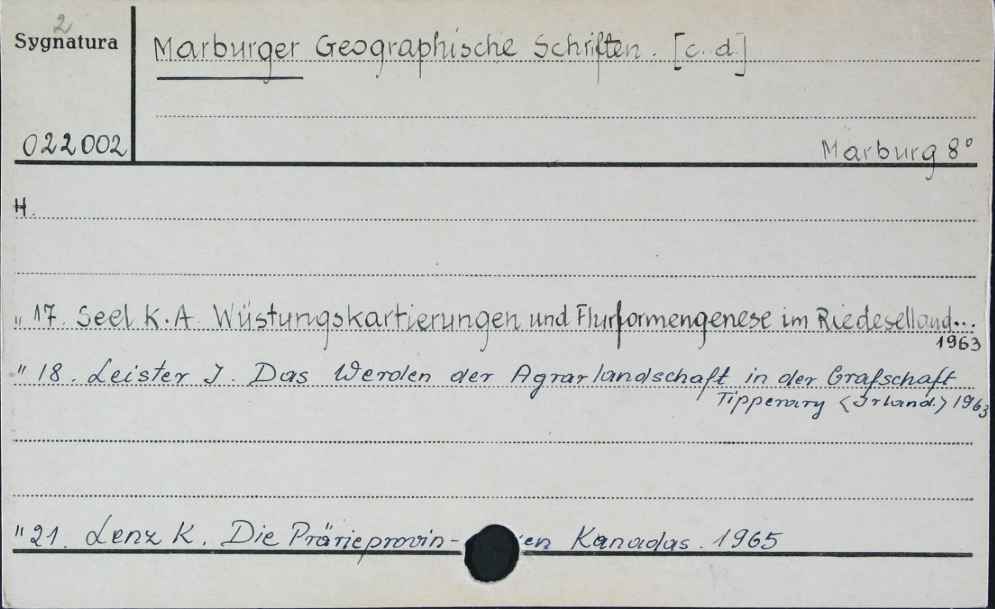 2
Sygnatura
Marburger Geographische Schriften. [c. d.]
022002
Marburg 8°
H.
" 17. Seel K.A. Wüstungskartierungen und Flurformengenese im Riedeselland...
1963
" 18. Leister I. Das Werden der Agrarlandschaft in der Grafschaft
Tipperary <Irland.> 1963
" 21. Lenz K. Die Prärieprovin- en Kanadas. 1965